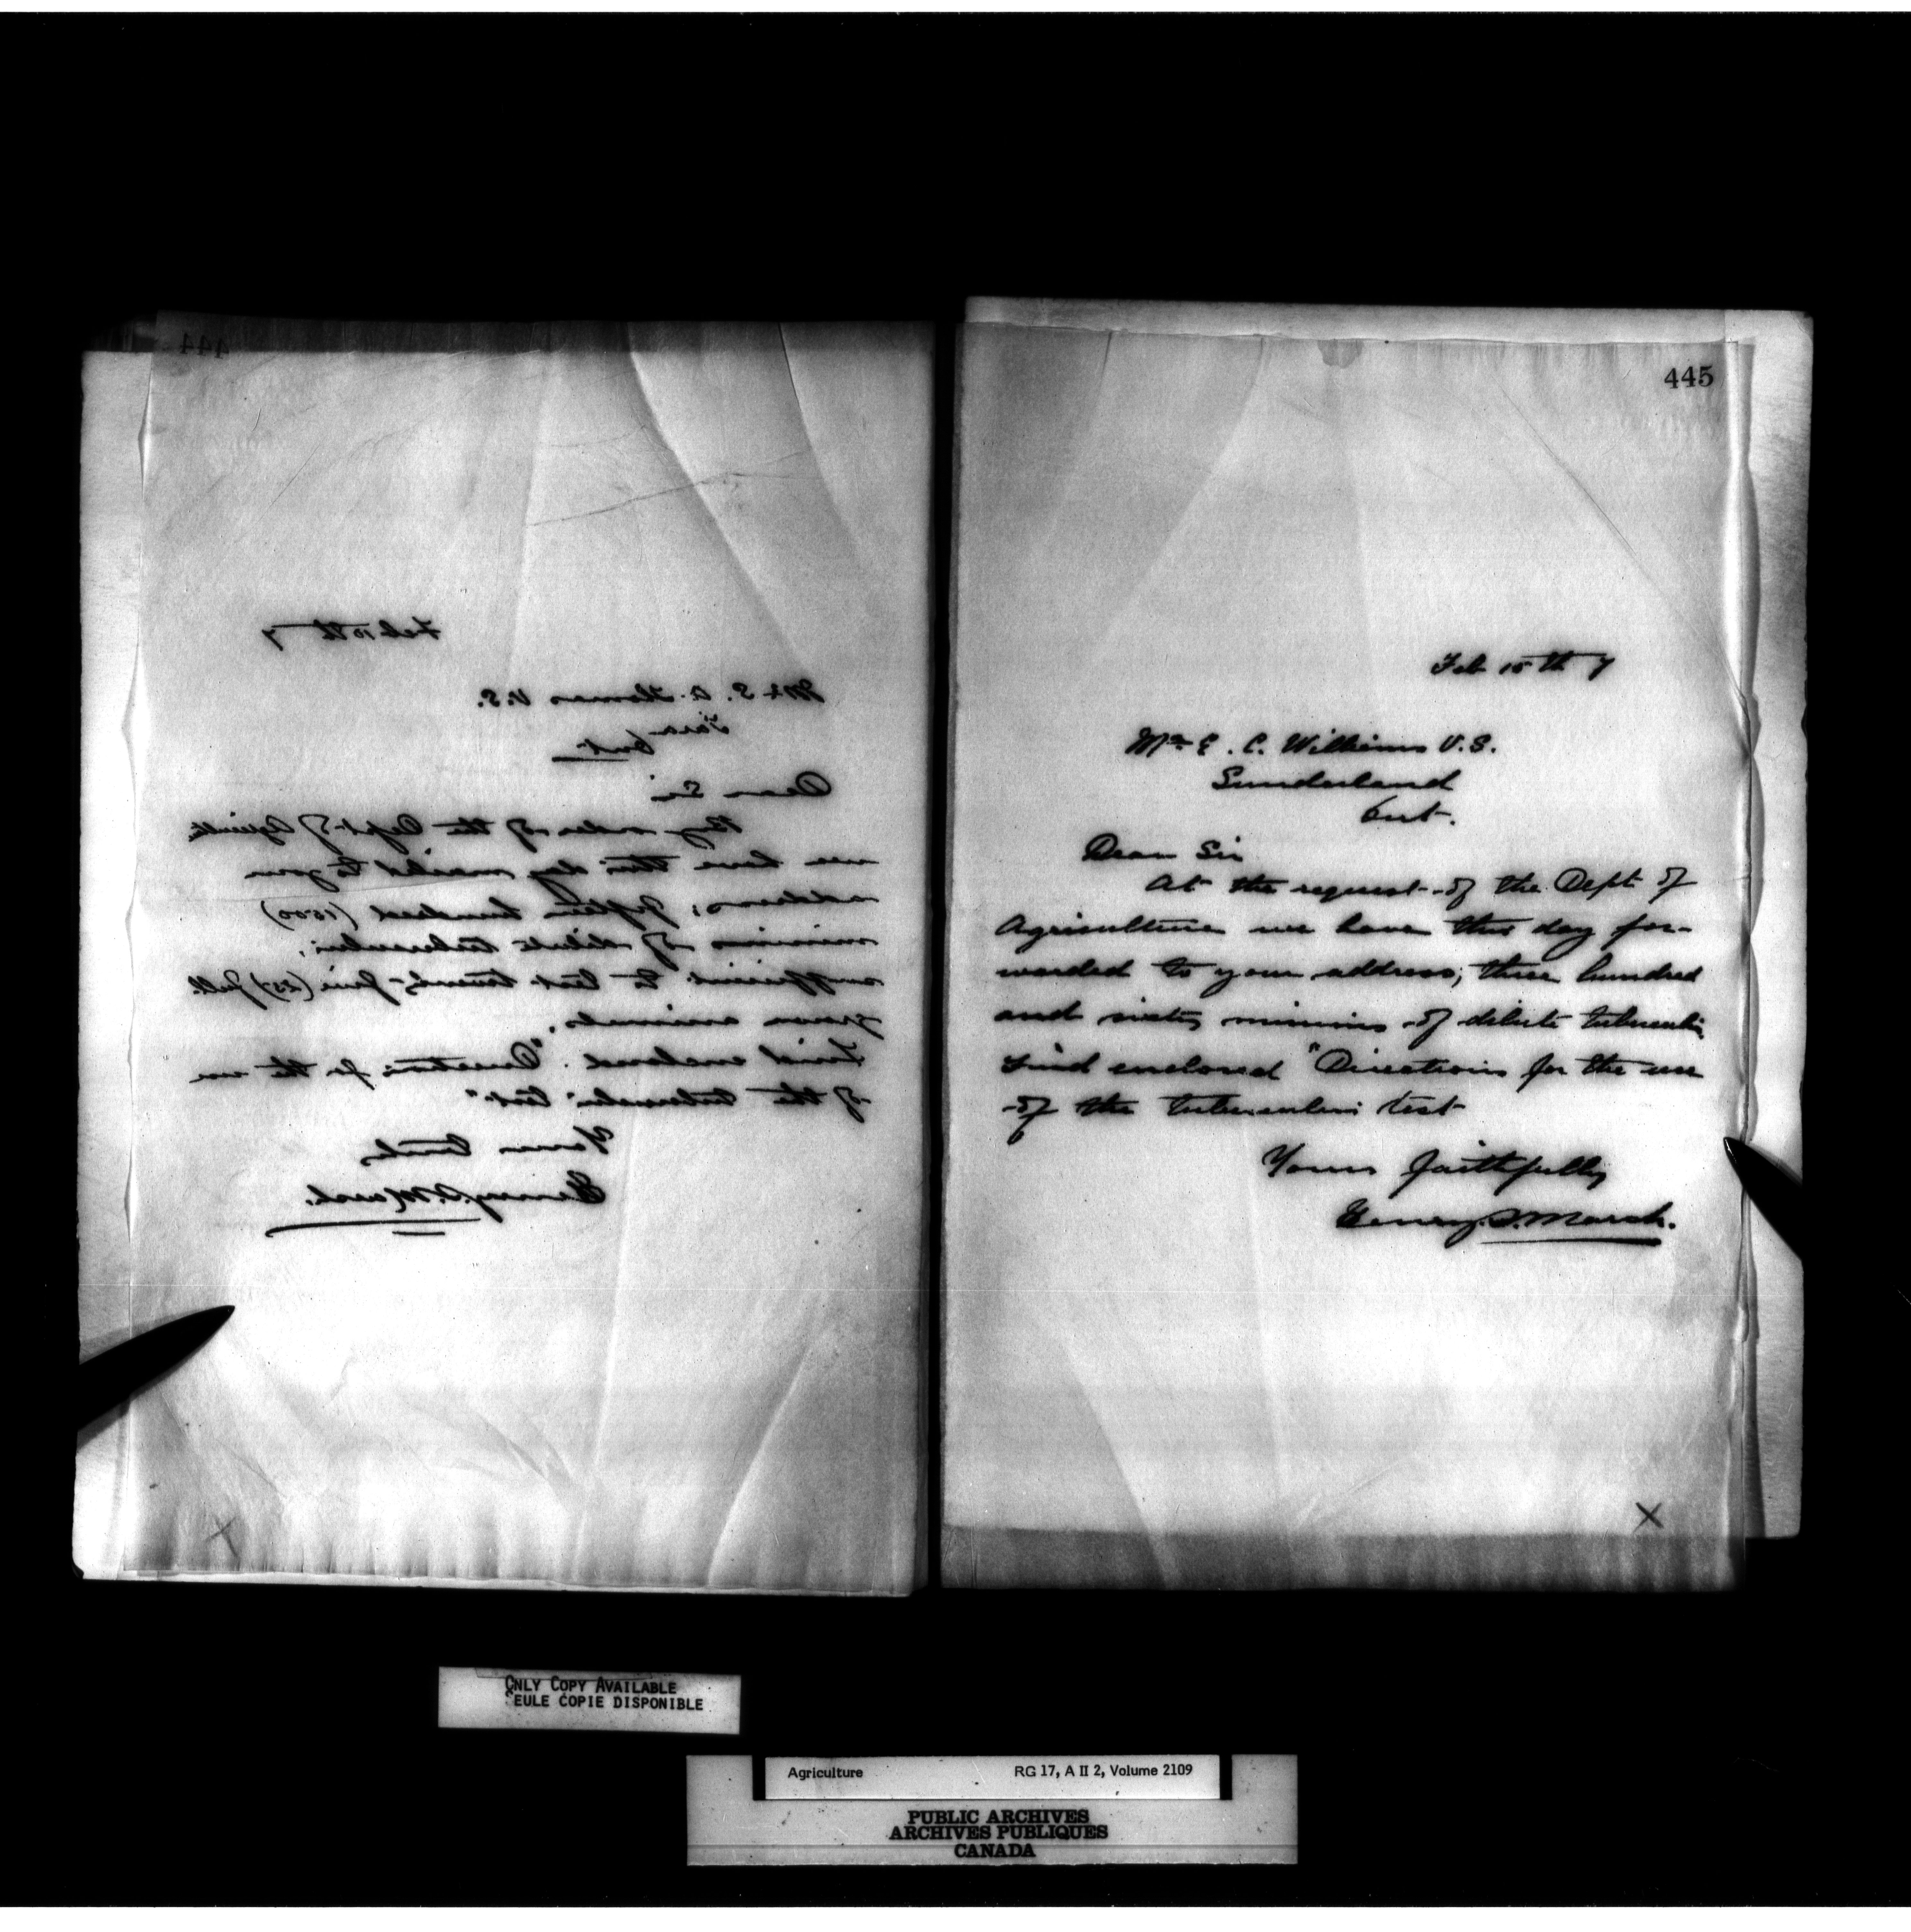 444
Feb 15th 7
Mr S. A. Thomas V.S.
Tara
Ont.
Dear Sir
By order of the Dept of
we have this day mailed to your
address; fifteen hundred (1500)
minims of dilute tuberculin;
sufficient to test twenty-five (25) full
grown animals.
Find enclosed "Directions for the use
of the tuberculin test"
Yours truly
Henry S. March.
445
Feb 15th 7
Mr E. C. Williams V.S.
Sunderland
Ont.
Dear Sir
At the request of the Dept of
Agriculture we have this day for-
warded to your address; three hundred
and sixty minims of dilute tuberculin
Find enclosed "Directions for the use
of the tuberculin test
Yours faithfully
Henry. S. March.
X
ONLY COPY AVAILABLE
SEULE COPIE DISPONIBLE
Agriculture RG 17, A II 2, Volume 2109
PUBLIC ARCHIVES
ARCHIVES PUBLIQUES
CANADA